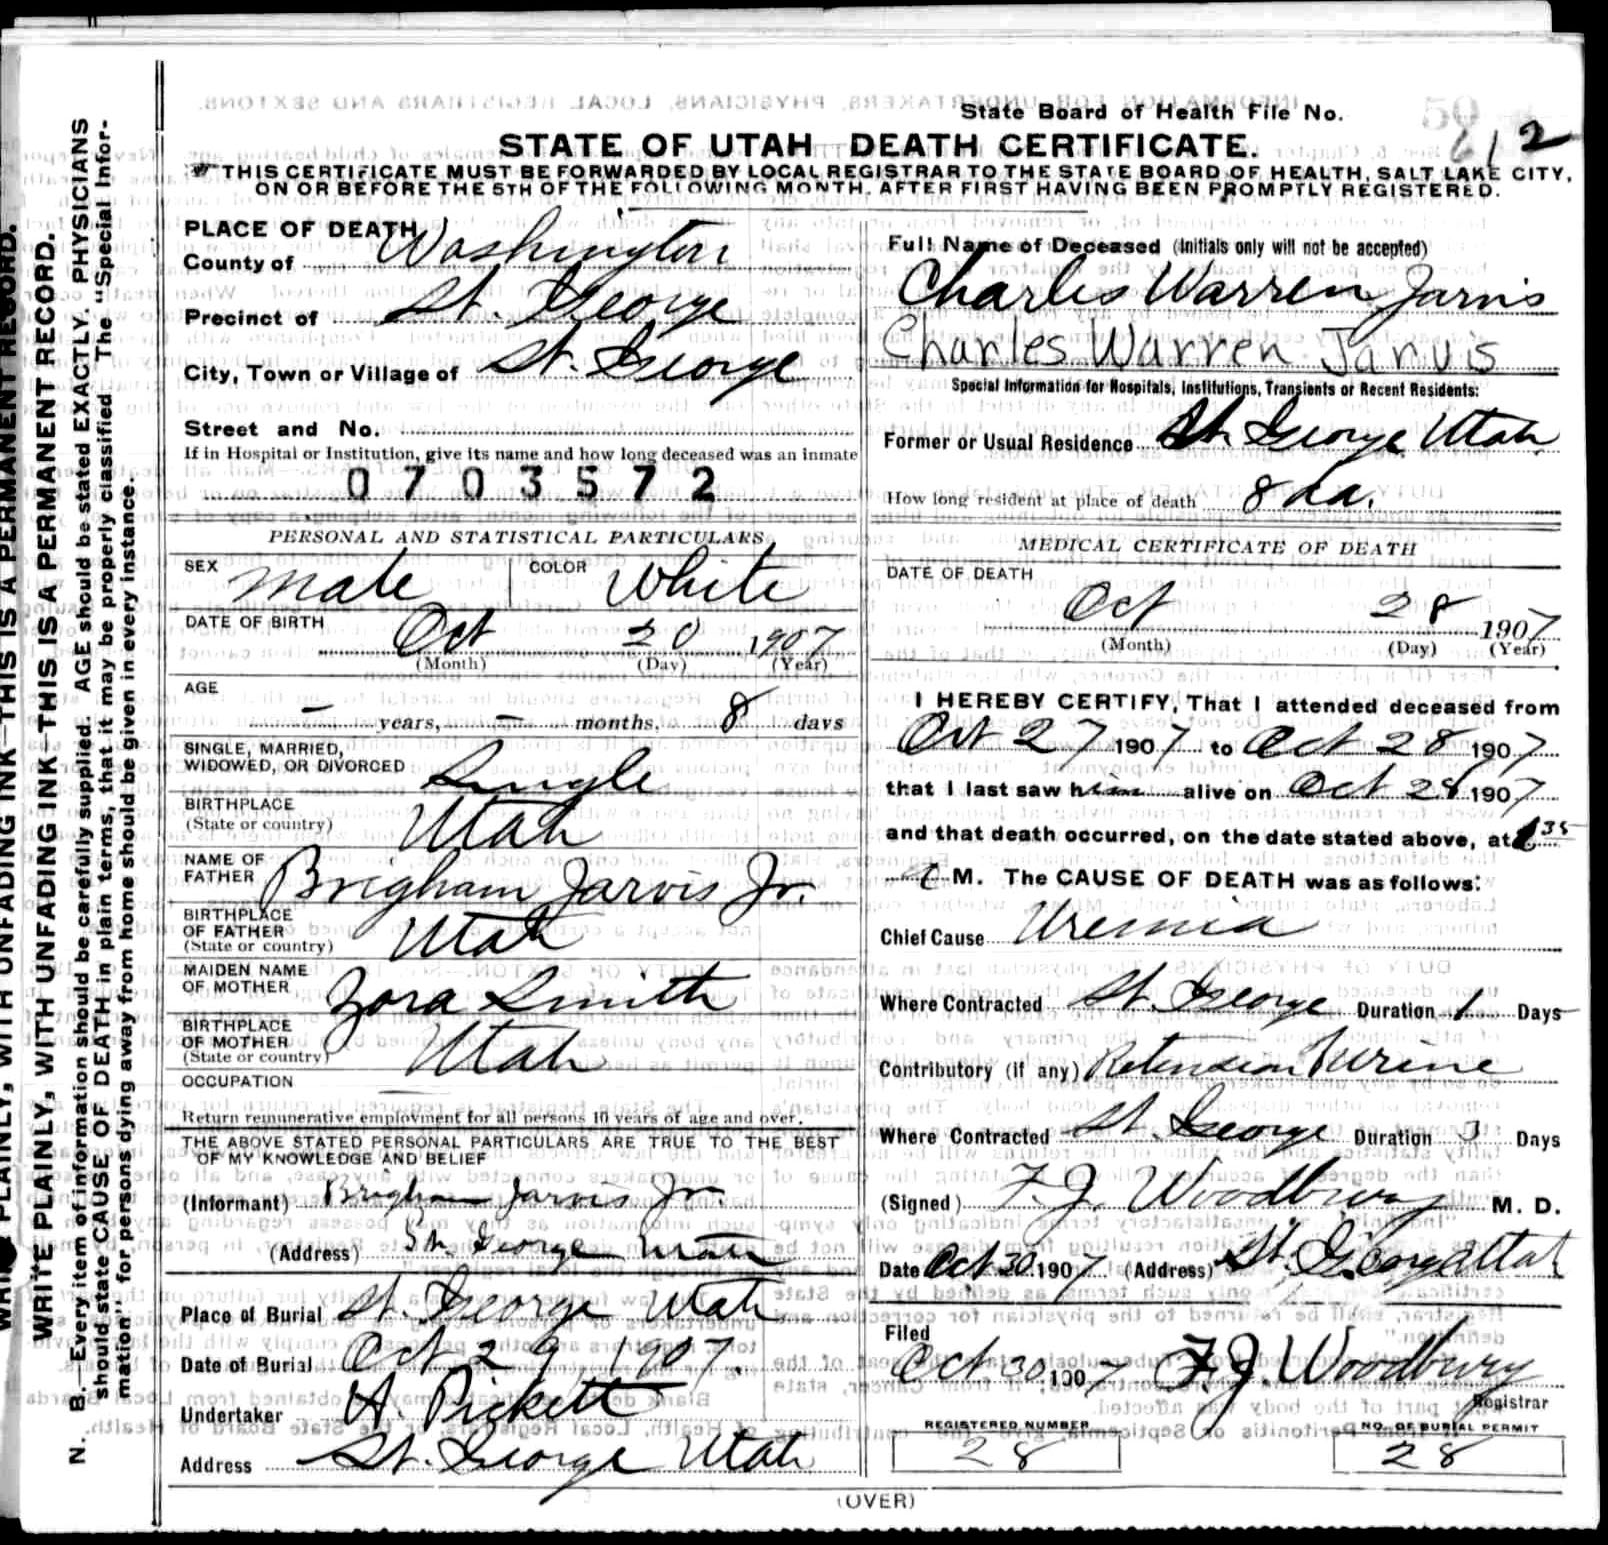 State Board of Health File No. 612
STATE OF UTAH DEATH CERTIFICATE.
THIS CERTIFICATE MUST BE FORWARDED BY LOCAL REGISTRAR TO THE STATE BOARD OF HEALTH, SALT LAKE CITY,
ON OR BEFORE THE 5TH OF THE FOLLOWING MONTH, AFTER FIRST HAVING BEEN PROMPTLY REGISTERED.
PLACE OF DEATH
County of Washington
Precinct of St. George
City, Town or Village of St. George
Street and No.
If in Hospital or Institution, give its name and how long deceased was an inmate
0703572
PERSONAL AND STATISTICAL PARTICULARS
SEX Male COLOR White
DATE OF BIRTH Oct 20 1907
(Month) (Day) (Year)
AGE
- years, - months, 8 days
SINGLE, MARRIED,
WIDOWED, OR DIVORCED Single
BIRTHPLACE
(State or country) Utah
NAME OF
FATHER Brigham Jarvis Jr.
BIRTHPLACE
OF FATHER
(State or country) Utah
MAIDEN NAME
OF MOTHER Zora Smith
BIRTHPLACE
OF MOTHER
(State or country) Utah
OCCUPATION
Return remunerative employment for all persons 10 years of age and over.
THE ABOVE STATED PERSONAL PARTICULARS ARE TRUE TO THE BEST
OF MY KNOWLEDGE AND BELIEF
(Informant) Brigham Jarvis Jr.
(Address) St. George Utah
Place of Burial St. George Utah
Date of Burial Oct 29 1907.
Undertaker A. Pickett
Address St. George Utah
Full Name of Deceased (Initials only will not be accepted)
Charles Warren Jarvis
Charles Warren Jarvis
Special Information for Hospitals, Institutions, Transients or Recent Residents:
Former or Usual Residence St. George Utah
How long resident at place of death 8 da.
MEDICAL CERTIFICATE OF DEATH
DATE OF DEATH
Oct 28 1907
(Month) (Day) (Year)
I HEREBY CERTIFY, That I attended deceased from
Oct 27 1907 to Oct 28 1907
that I last saw him alive on Oct 28 1907
and that death occurred, on the date stated above, at 35
a M. The CAUSE OF DEATH was as follows:
Chief Cause Uremia
Where Contracted St. George Duration 1 Days
Contributory (if any) Retension Urine
Where Contracted St. George Duration 3 Days
(Signed) F. J. Woodbury M. D.
Date Oct 30 1907 (Address) St. George Utah
Filed
Oct 30 1907 F. J. Woodbury
Registrar
REGISTERED NUMBER
28
NO. OF BURIAL PERMIT
28
(OVER)
WRITE PLAINLY, WITH UNFADING INK—THIS IS A PERMANENT RECORD.
WRITE PLAINLY, WITH UNFADING INK—THIS IS A PERMANENT RECORD.
N. B.—Every item of information should be carefully supplied. AGE should be stated EXACTLY. PHYSICIANS
should state CAUSE OF DEATH in plain terms, that it may be properly classified. The "Special Infor-
mation" for persons dying away from home should be given in every instance.